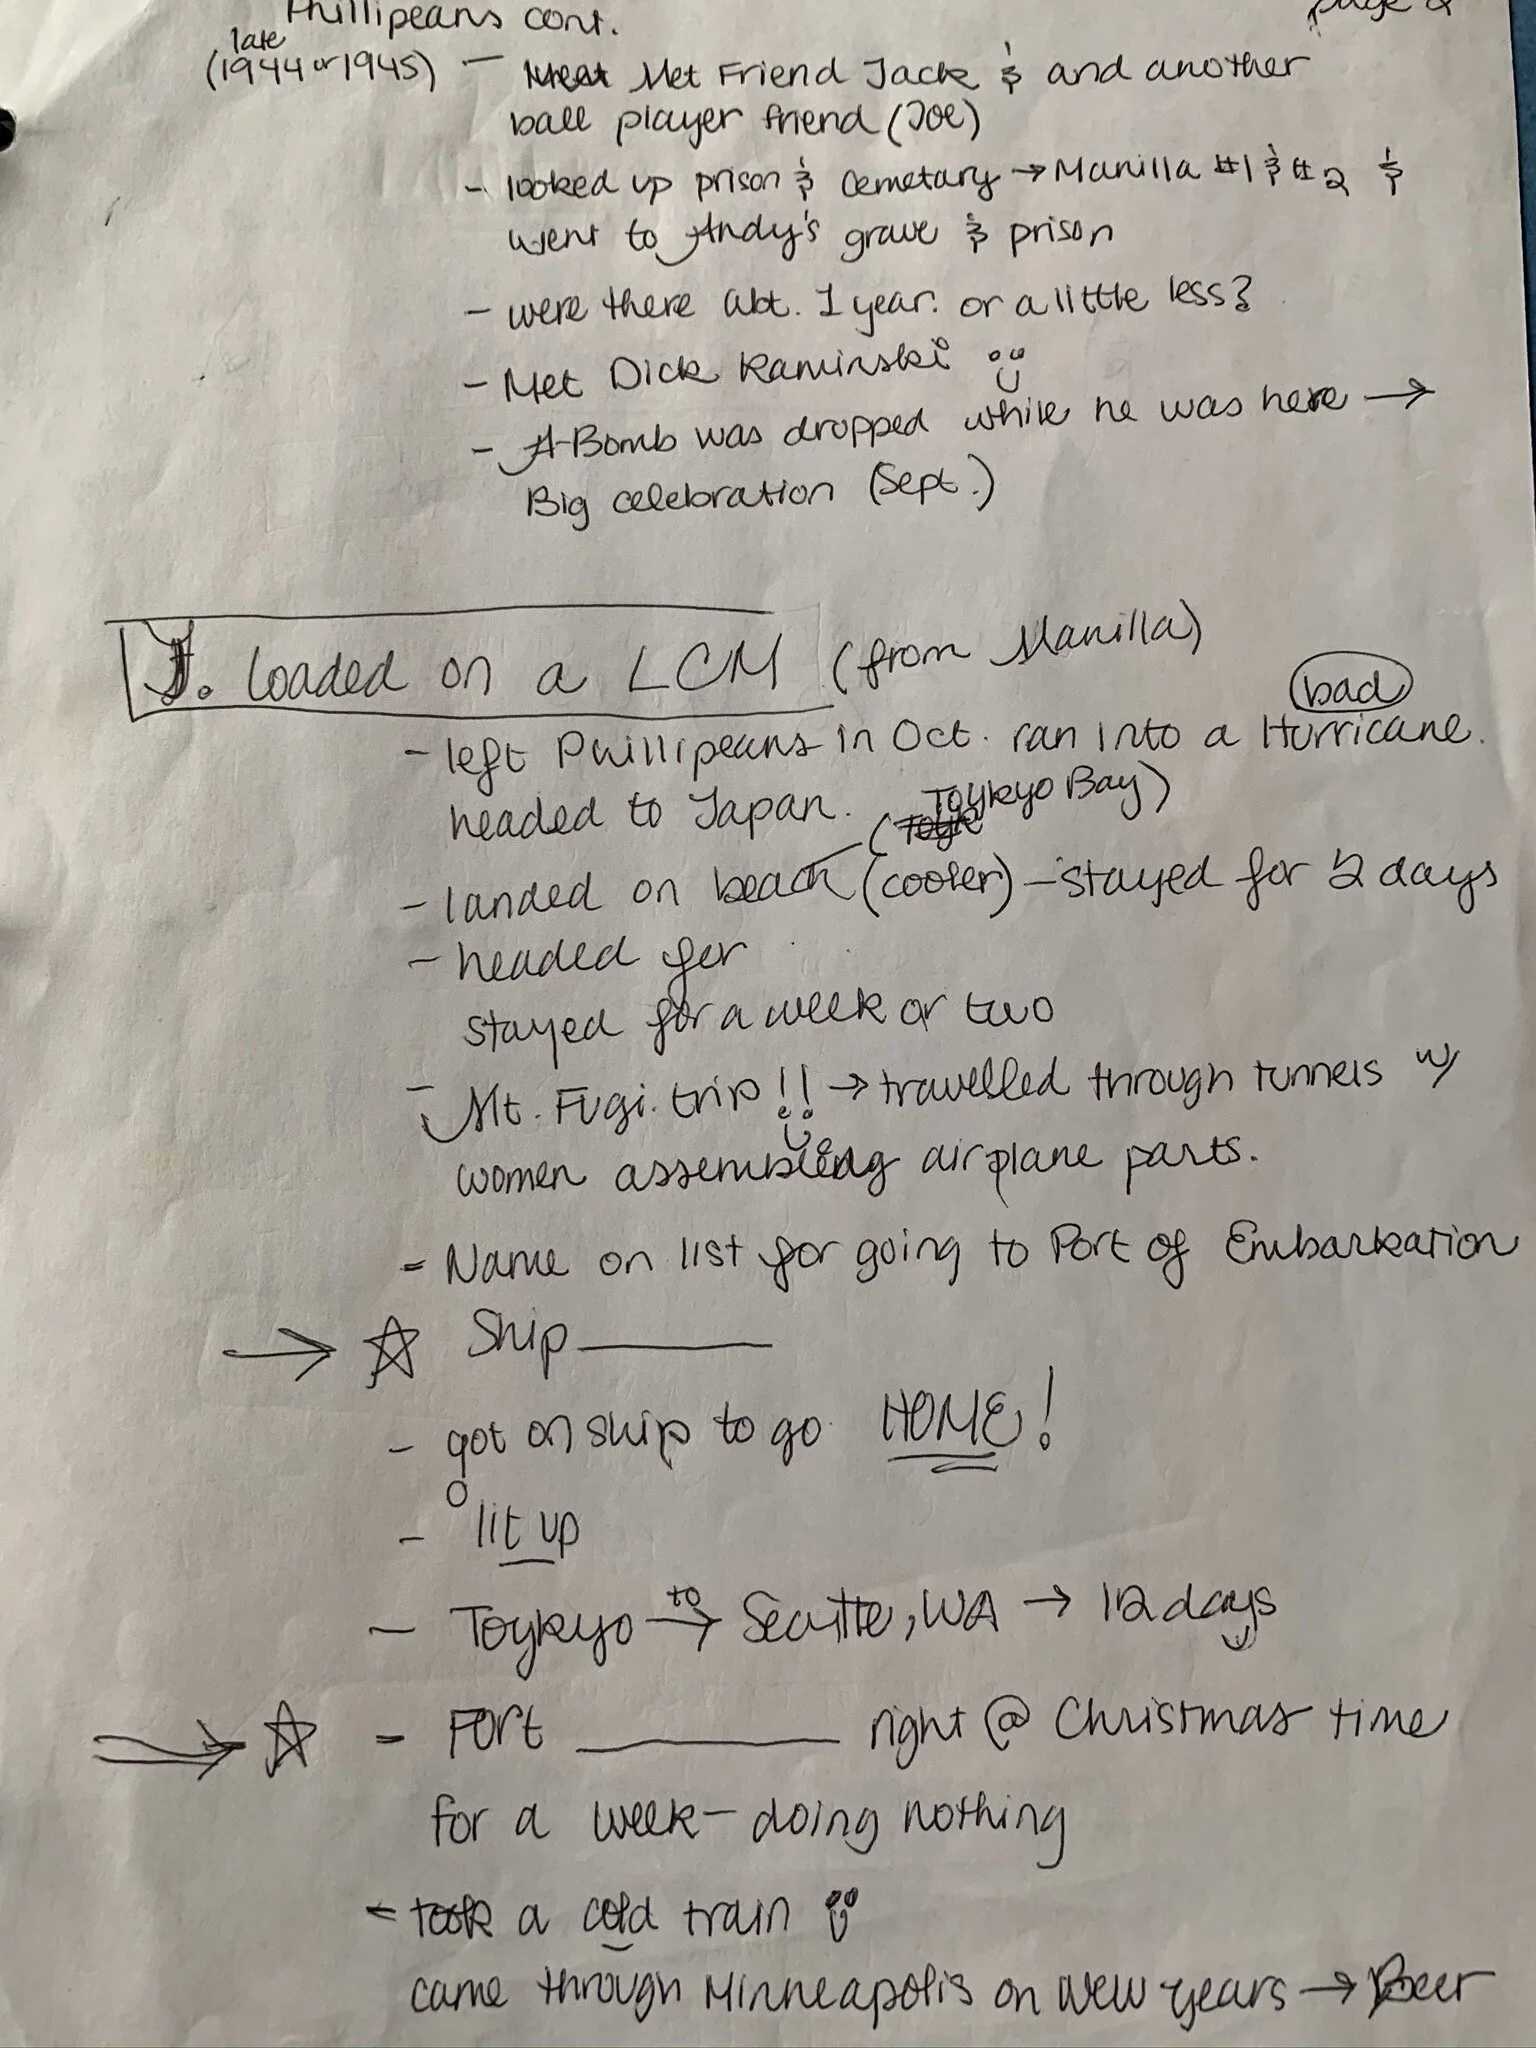 Phillipeans cont. page 2
late
(1944 or 1945) - Met Friend Jack & and another
ball player friend (Joe)
- looked up prison & cemetary → Manilla #1 & #2 &
went to Andy's grave & prison
- were there abt. 1 year. or a little less?
- Met Dick Kaminski
- A-Bomb was dropped while he was here →
Big celebration (Sept.)
J. loaded on a LCM (from Manilla)
bad
- left Phillipeans in Oct. ran into a Hurricane.
headed to Japan. (Toykyo Bay)
- landed on beach (cooler) - stayed for 2 days
- headed for
stayed for a week or two
- Mt. Fugi. trip!! → travelled through tunnels w/
women assembling airplane parts.
- Name on list for going to Port of Embarkation
→ ☆ Ship ______
- got on ship to go HOME!
- lit up
- Toykyo to → Seattle, WA → 12 days
→ ☆ - Fort ______ right @ Christmas time
for a week - doing nothing
- took a cold train
came through Minneapolis on New Years → Beer